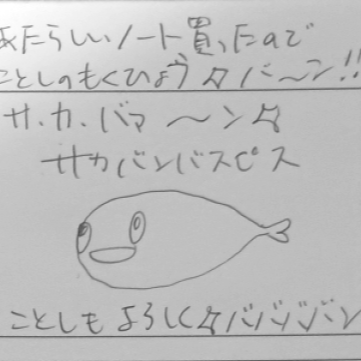 あたらしいノート買ったので
ことしのもくひょう☆バ〜ン!!
サ.カ.バァ〜ン☆
サカバンバスピス
ことしもよろしく☆ババババン